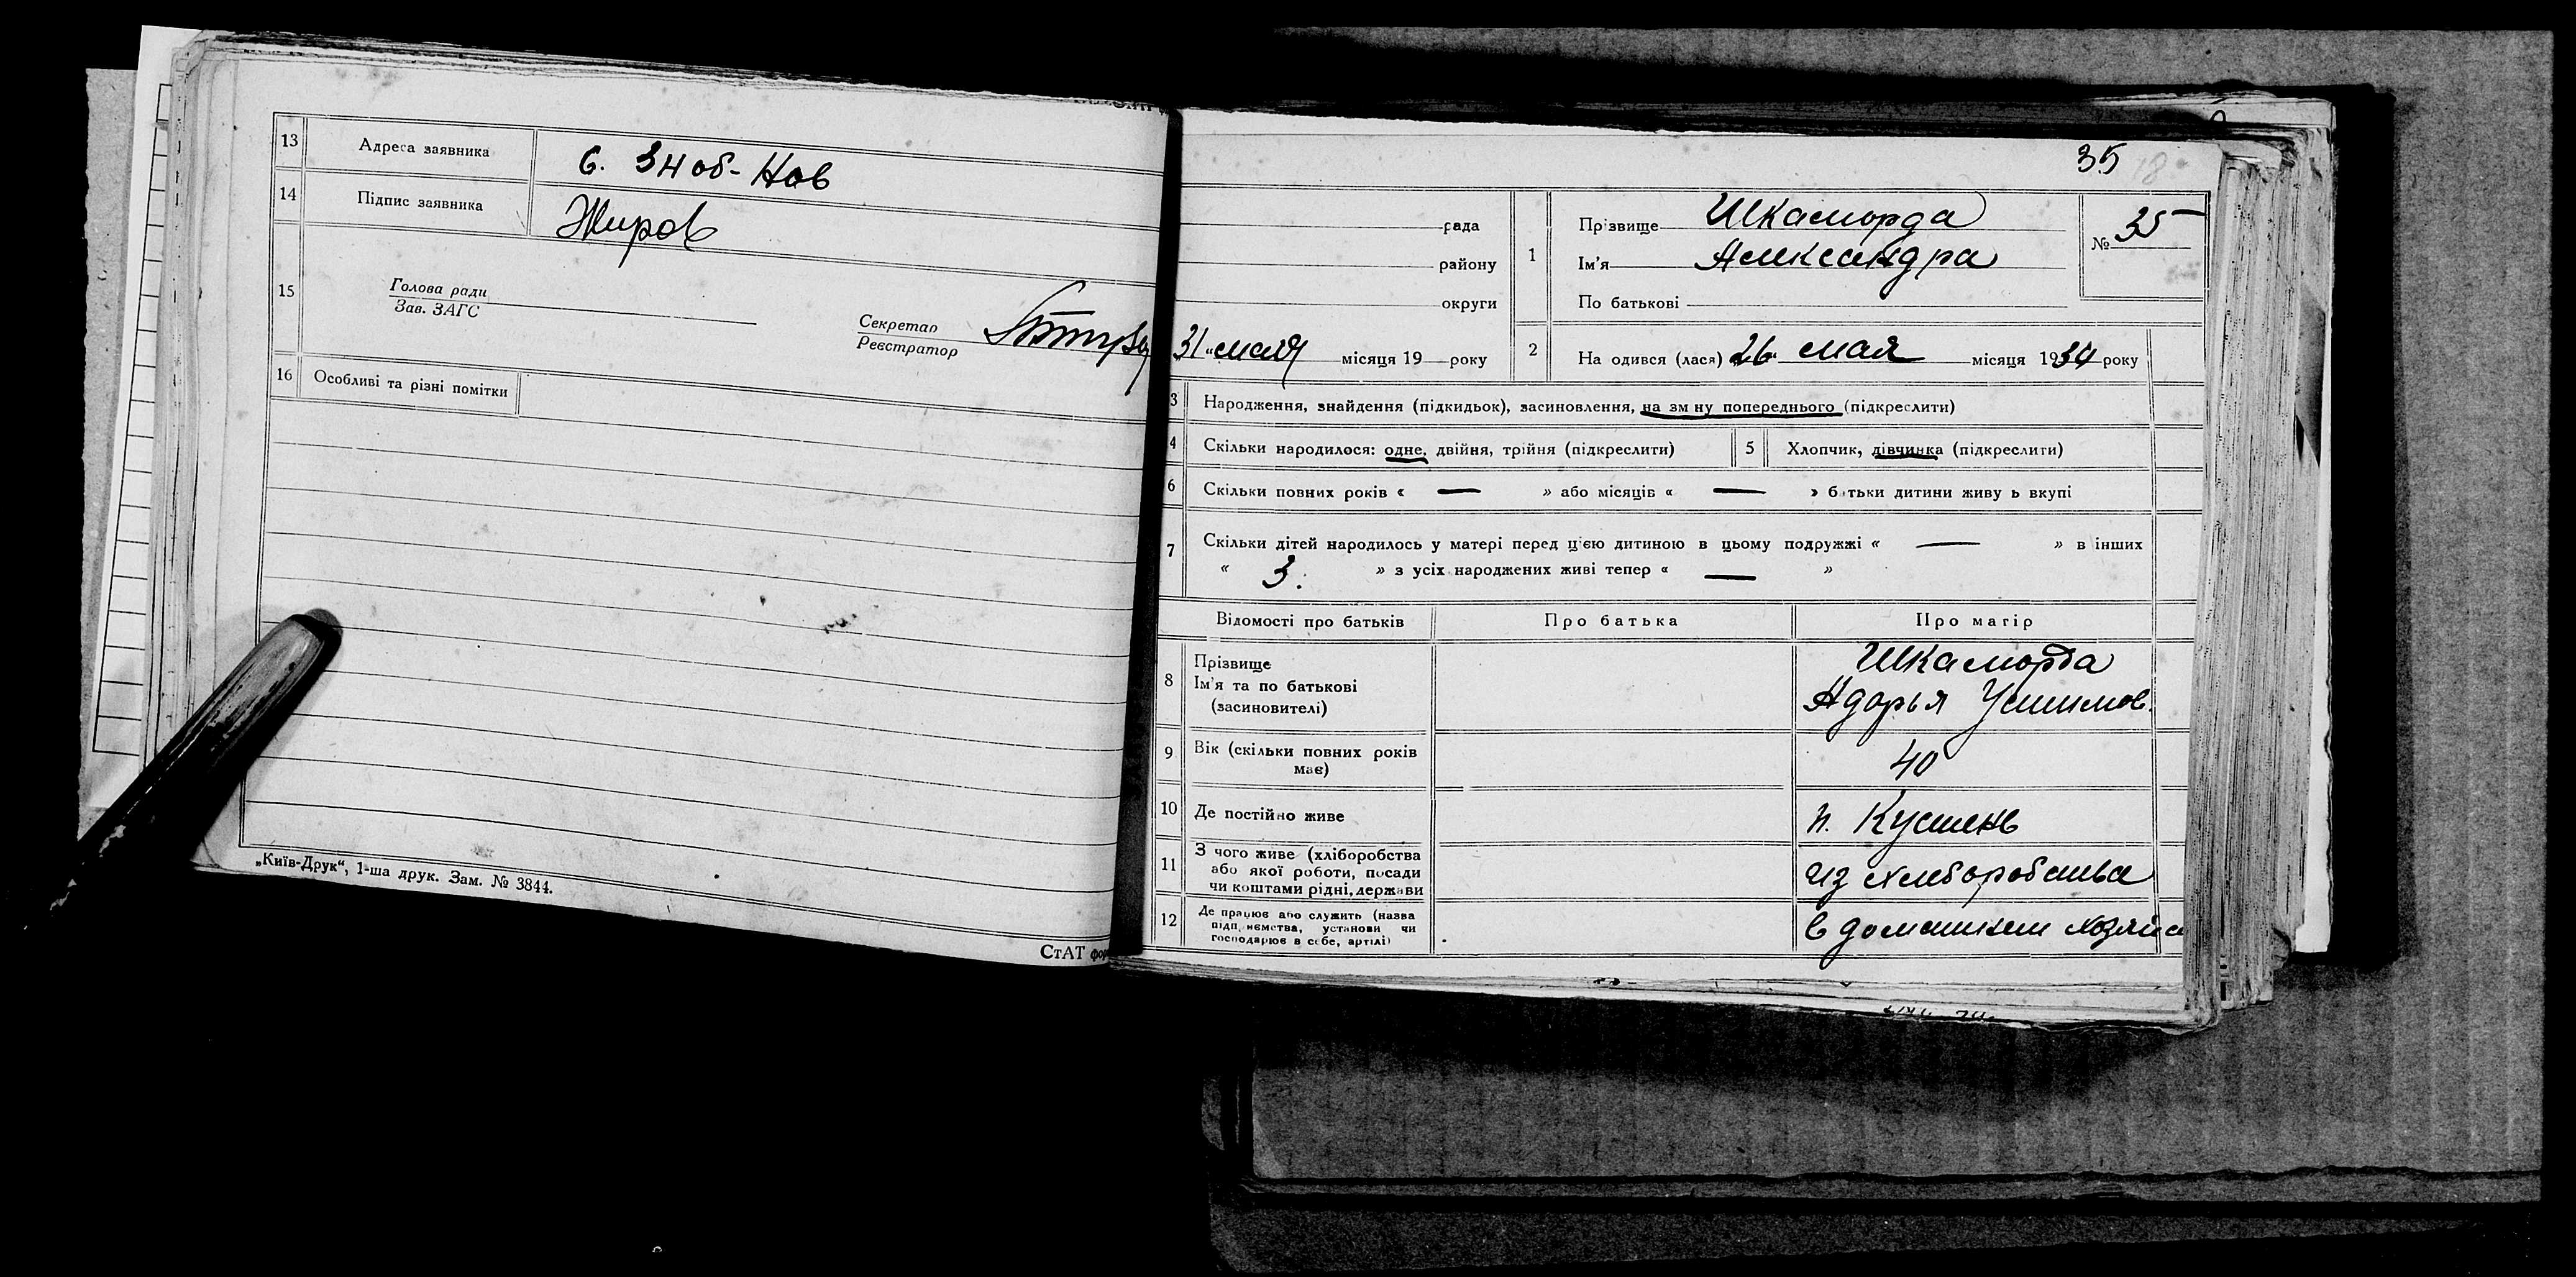 13 Адреса заявника с. Зноб-Нов
14 Підпис заявника Жиров
15 Голова ради
Зав. ЗАГС
Секретар
Реєстратор
16 Особливі та різні помітки
„Київ-Друк“, 1-ша друк. Зам. № 3844.
СтАТ фор
35
рада
району
округи
31 „мая місяця 19 року
1 Прізвище Шкаморда
Ім'я Александра
По батькові
№ 35
2 На одився (лася) „26“ мая місяця 1934 року
3 Народження, знайдення (підкидьок), засиновлення, на зм ну попереднього (підкреслити)
4 Скільки народилося: одне, двійня, трійня (підкреслити)
5 Хлопчик, дівчинка (підкреслити)
6 Скільки повних років « — » або місяців « — » б тьки дитини живу ь вкупі
7 Скільки дітей народилось у матері перед цією дитиною в цьому подружжі « — » в інших
« 3. » з усіх народжених живі тепер « — »
Відомості про батьків Про батька Про матір
8 Прізвище Шкаморда
Ім'я та по батькові
(засиновителі)
9 Вік (скільки повних років
має) 40
10 Де постійно живе п.
11 З чого живе (хліборобства
або якої роботи, посади
чи коштами рідні, держави
из хлеборобства
12 Де працює або служить (назва
підп, иємства, установи чи
господарює в себе, артілі)
в домашнем хозяйс